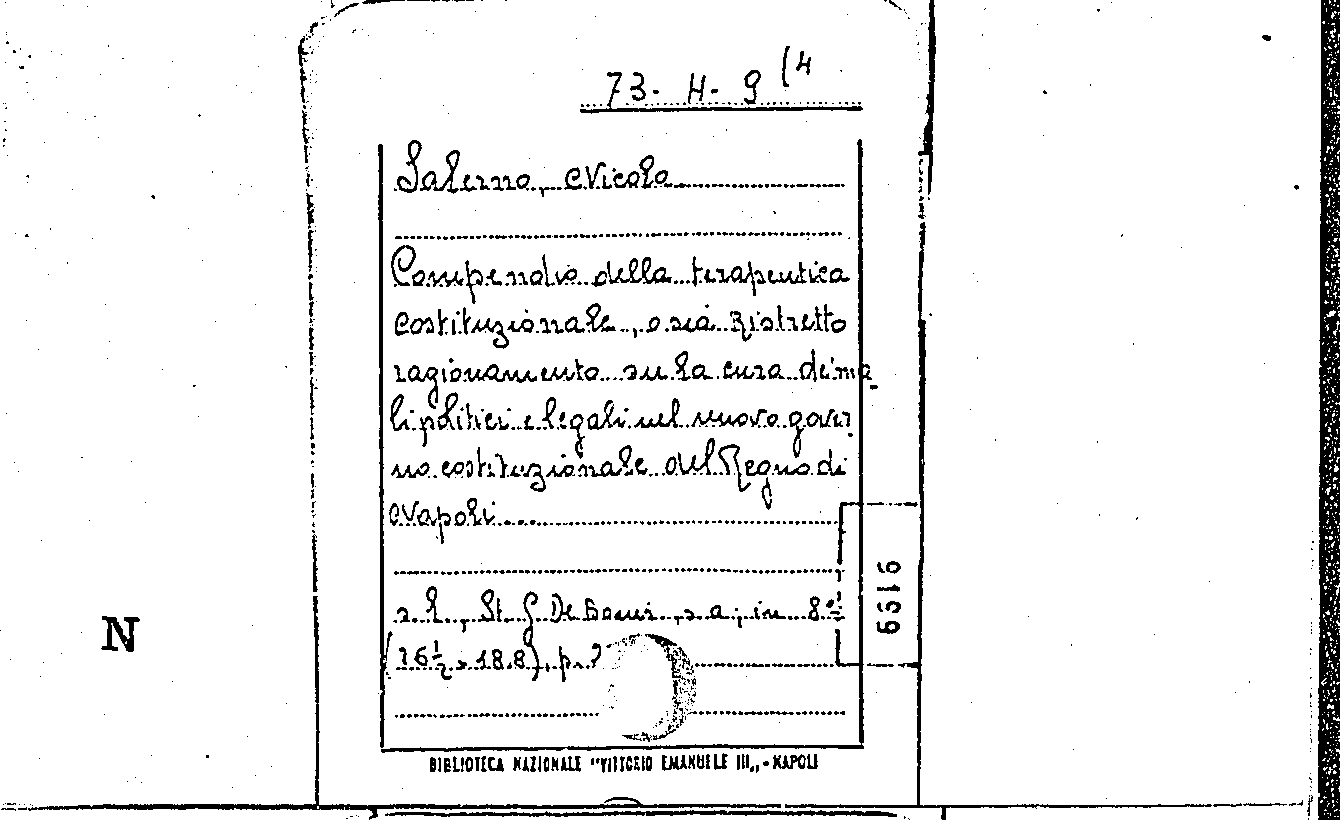 73- H- 9 (4
Salerno, Nicola
Compendio della terapeutica
costituzionale, o sia Ristretto
ragionamento su la cura de' ma
li politici e legali nel nuovo gover
no costituzionale del Regno di
Napoli...
s. l., St. G. De Bonis, s. a; in 8°
(26½ × 18.8), p.
6616
N
BIBLIOTECA NAZIONALE "VITTORIO EMANUELE III„ - NAPOLI